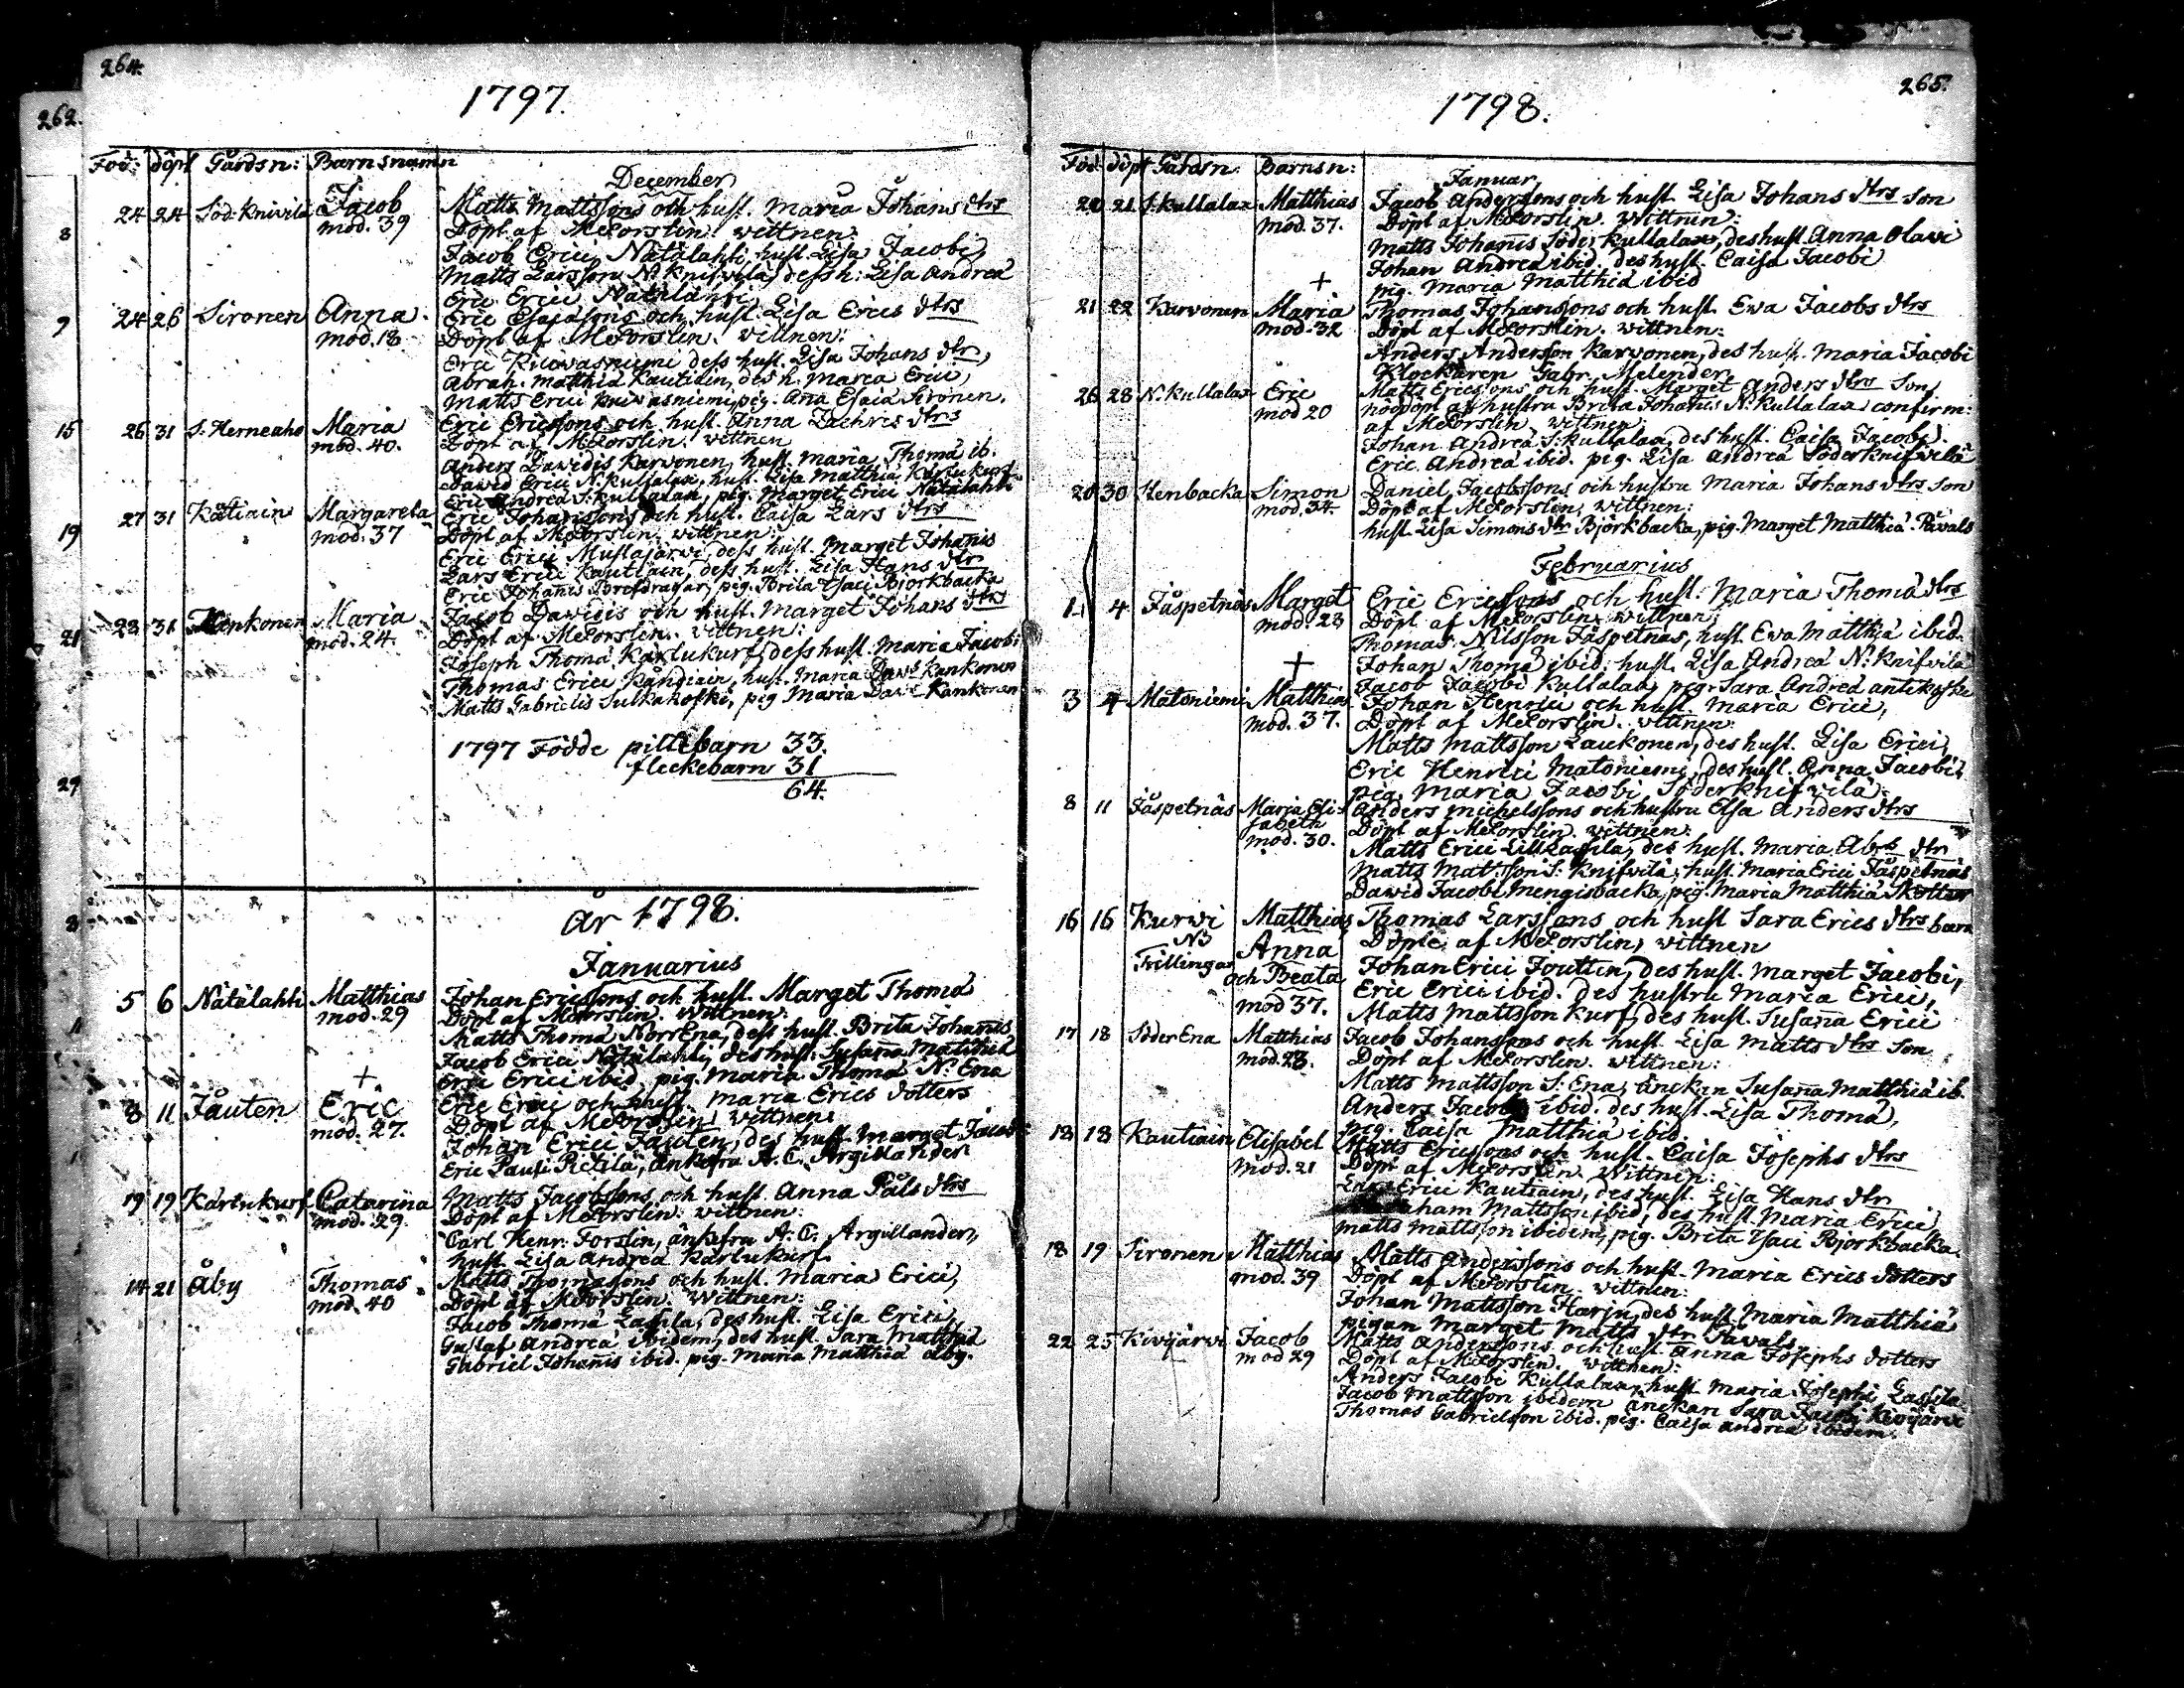 264.
1797.
262.
Föd: döpt Gårdsn: Barnsnamn
December
24 24 Söd. Knivilä Jacob Matts Mattssons och hust. Maria Johans dtrs
mod. 39 Döpt af MForslin. wittnen:
8
Jacob Erici Nätälahti, hust. Lisa Jacobi,
Matts Larsson N. Knifvilä, dess h: Lisa Andreä
Eric Erici Nätälahti
9
24 26 Sironen Anna Eric Esajasons och hust. Lisa Erics dtrs
mod. 18 Döpt af MForslin. wittnen:
Eric Kiiwasniemi dess hust. Lisa Johans dtr,
Abrah. Matthiä Kautiain, des h. Maria Erici,
Matts Erici Kiiwasniemi, pig. Aña Esaiä Sironen.
15
26 31 S. Herneaho Maria Eric Ericssons och hust. Anna Zachris dtrs
mod. 40. Döpt af MForslin. wittnen
Anders Dawidis Karvonen, hust. Maria Thomä ib.
Dawid Erici N. Kullalax, hust. Lisa Matthiä Kärtukurf
Eric Andreä S. Kullalax, pig. Marget Erici Nätälahti
19
27 31 Kåtiain Margareta Eric Johanssons och hust. Caisa Lars dtrs
mod. 37 Döpt af MForslin. wittnen:
Eric Erici Mustajärwi, dess hust. Marget Johañis
Lars Erici Kautiain, dess hust. Lisa Hans dtr
Eric Johañis Brefdragar, pig. Brita Ysaci Björkbacka
21
28 31 Kenkonen Maria Jacob Dawidis och hust. Marget Johans dtrs
mod. 24. Döpt af MForslin. wittnen:
Joseph Thomä Kärtukurf, dess hust. Maria Jacobi
Thomas Erici Kandiain, hust. Maria Daws Kankonen
Matts Gabrielis Sulkakoski, pig Maria Dav. Kankonen
1797 Födde piltebarn 33.
fleckebarn 31
64.
29
8
år 1798.
Januarius
5 6 Nätälahti Matthias Johan Ericssons och hust. Marget Thomä
mod. 29 Döpt af MForslin. wittnen:
Matts Thomä NorrEna, dess hust. Brita Johañis
Jacob Erici Nätälahti, des hust. Susaña Matthiä
+ Eric Erici ibid, pig. Maria Thomä N. Ena
8 11 Jåuten Eric Eric Erici och hust. Maria Erics dotters
mod. 27. Döpt af MForslin. wittnen:
Johan Erici Jauten, des hust. Marget Jacobi
Eric Pauli Pietilä, änkefru A. C. Argillander
19 19 Kärtukurf Catarina Matts Jacobssons och hust. Anna Påls dtrs
mod. 29. Döpt af MForslin. wittnen:
Carl Henr. Forslin, änkefru A. C. Argillander,
hust. Lisa Andreä Kärtukurf
14 21 Åby Thomas Matts Thomasons och hust. Maria Erici,
mod. 40 Döpt af MForslin. wittnen:
Jacob Thomä Lassila, des hust. Lisa Erici,
Gustaf Andreä ibidem, des hust. Sara Matthiä
Gabriel Johañis ibid. pig. Maria Matthiä Åby.
265.
1798.
Föd. döpt Gårdsn. Barnsn:
Januar.
20 21 S. Kullalax Matthias Jacob Anderssons och hust. Lisa Johans dtrs son
mod. 37. Döpt af MForslin. wittnen:
Matts Johañis Söder Kullalax, des hust. Anna Olavi
Johan Andreä ibid. des hust. Caisa Jacobi
+ pig. Maria Matthiä ibid
21 22 Karvonen Maria Thomas Johanssons och hust. Ewa Jacobs dtrs
mod. 32 Döpt af MForslin. wittnen:
Anders Andersson Karvonen, des hust. Maria Jacobi
Klockaren Gabr. Melender
26 28 N. Kullalax Eric Matts Ericssons och hust. Marget Anders dtrs son
mod 20 nöddöpt af hustru Brita Johañis N. Kullalax confirm:
af MForslin. wittnen
Johan Andreä S. Kullalax, des hust. Caisa Jacobi.
Eric Andreä ibid. pig. Lisa Andreä Söderknifwilä
20 30 Henbacka Simon Daniel Jacobssons och hustru Maria Johans dtrs son
mod. 34. Döpt af MForslin. wittnen:
hust. Lisa Simons dtr Björkbacka, pig. Marget Matthiä Påvals
Februarius
1. 4. Jåspetnäs Marget Eric Ericssons och hust. Maria Thomä dtrs
mod. 28 Döpt af MForslin. wittnen:
Thomas Nilsson Jåspetnäs, hust. Ewa Matthiä ibid.
+ Johan Thomä ibid: hust. Lisa Andreä N. Knifvilä
Jacob Jacobi Kullalax, pig. Sara Andreä
3 4 Matoniemi Matthias Johan Henrici och hust. Maria Erici,
mod. 37. Döpt af MForslin. wittnen:
Matts Mattsson Laukonen, des hust. Lisa Erici,
Eric Henrici Matoniemi, des hust. Anna Jacobi,
pig. Maria Jacobi Söderknifwilä.
8 11 Jåspetnäs Maria Eli- Anders Michelssons och hustru Elsa Anders dtrs
sabeth Döpt af MForslin. wittnen:
mod. 30. Matts Erici Lillkassila, des hust. Maria Abrs dtr
Matts Mat:son S: Knifvilä, hust. Maria Erici Jåspetnäs
Dawid Jacobi Mengisbacka, pig. Maria Matthiä Skottar
16 16 Kurwi Matthias Thomas Larssons och hust Sara Erics dtrs barn
N3 Anna Döpte af MForslin, wittnen
Trillingar och Beata Johan Erici Joutten, des hust. Marget Jacobi,
mod 37. Eric Erici ibid. des hustru Maria Erici,
Matts Mattsson Kurf, des hust. Susaña Erici
17 18 SöderEna Matthias Jacob Johanssons och hust Lisa Matts dtrs son
mod. 28. Döpt af MForslin. wittnen:
Matts Mattsson S: Ena, änckan Susaña Matthiä ib.
Anders Jacobi ibid. des hust. Lisa Thomä,
pig. Caisa Matthiä ibid
18 18 Kautiain Elisabet Matts Ericssons och hust. Caisa Josephs dtrs
mod. 21 Döpt af MForslin. wittnen:
Lars Erici Kautiain, des hust. Lisa Hans dtr
ham Mattsson ibid, des hust. Maria Erici,
Matts Mattsson ibidem, pig. Brita Ysaci Björkbacka.
18 19 Sironen Matthias Matts Anderssons och hust. Maria Erics dotters
mod. 39 Döpt af MForslin. wittnen:
Johan Mattsson Harju, des hust. Maria Matthiä
pigan Marget Matts dtr Påvals
22 25 Kivijärvi Jacob Matts Anderssons och hust. Anna Josephs dotters
mod 29 Döpt af MForslin. wittnen:
Anders Jacobi Kullalax, hust Maria Josephi Lassila
Jacob Mattsson ibidem änckan Sara Jacobi Kivijärvi
Thomas Gabrielsson ibid. pig. Caisa Andreä ibidem.